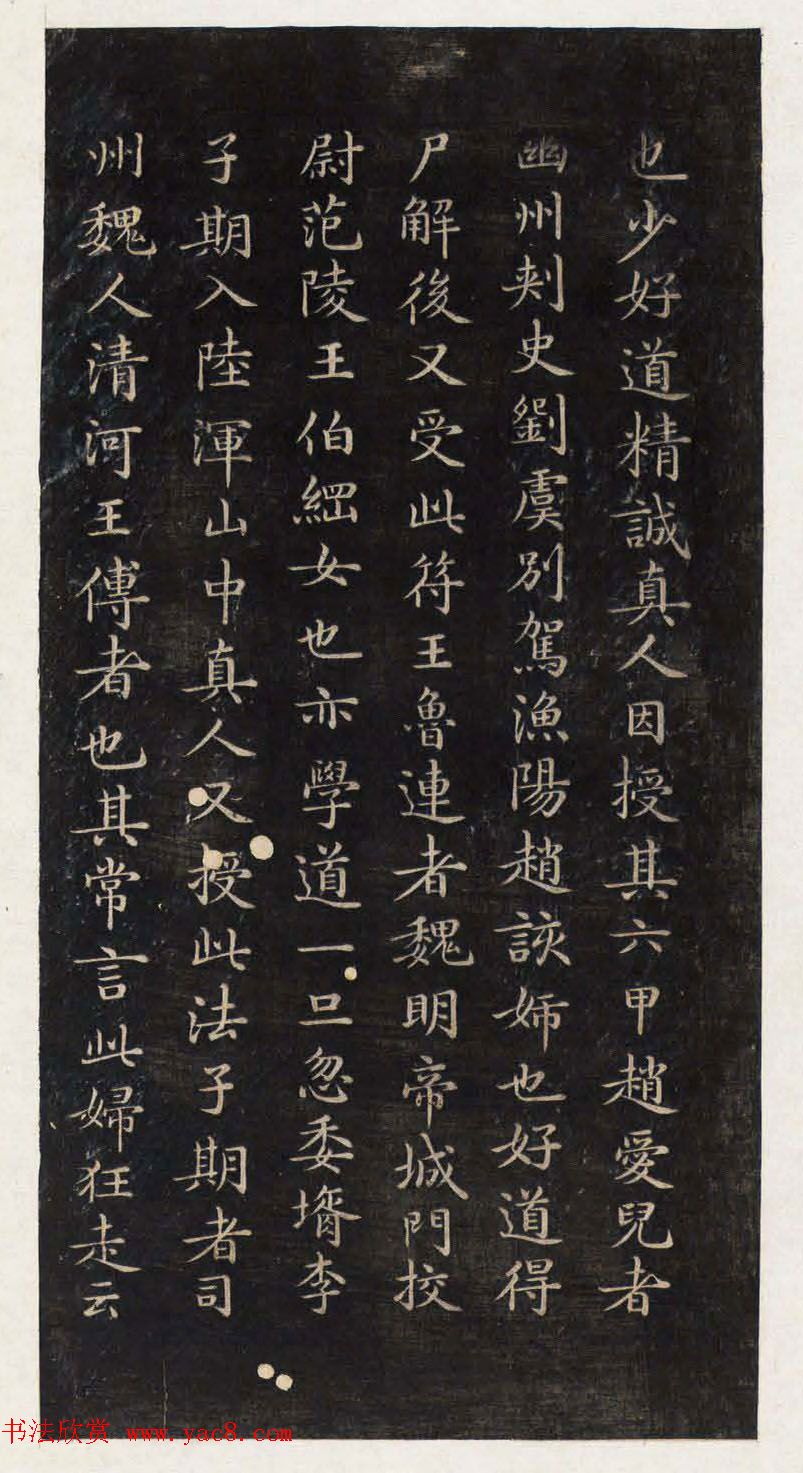 也少好道精誠真人因授其六甲趙愛兒者
幽州刺史劉虞別駕漁陽趙該姊也好道得
尸解後又受此符王魯連者魏明帝城門挍
尉范陵王伯綱女也亦學道一旦忽委壻李
子期入陸渾山中真人又授此法子期者司
州魏人清河王傅者也其常言此婦狂走云
书法欣赏 www.yac8.com